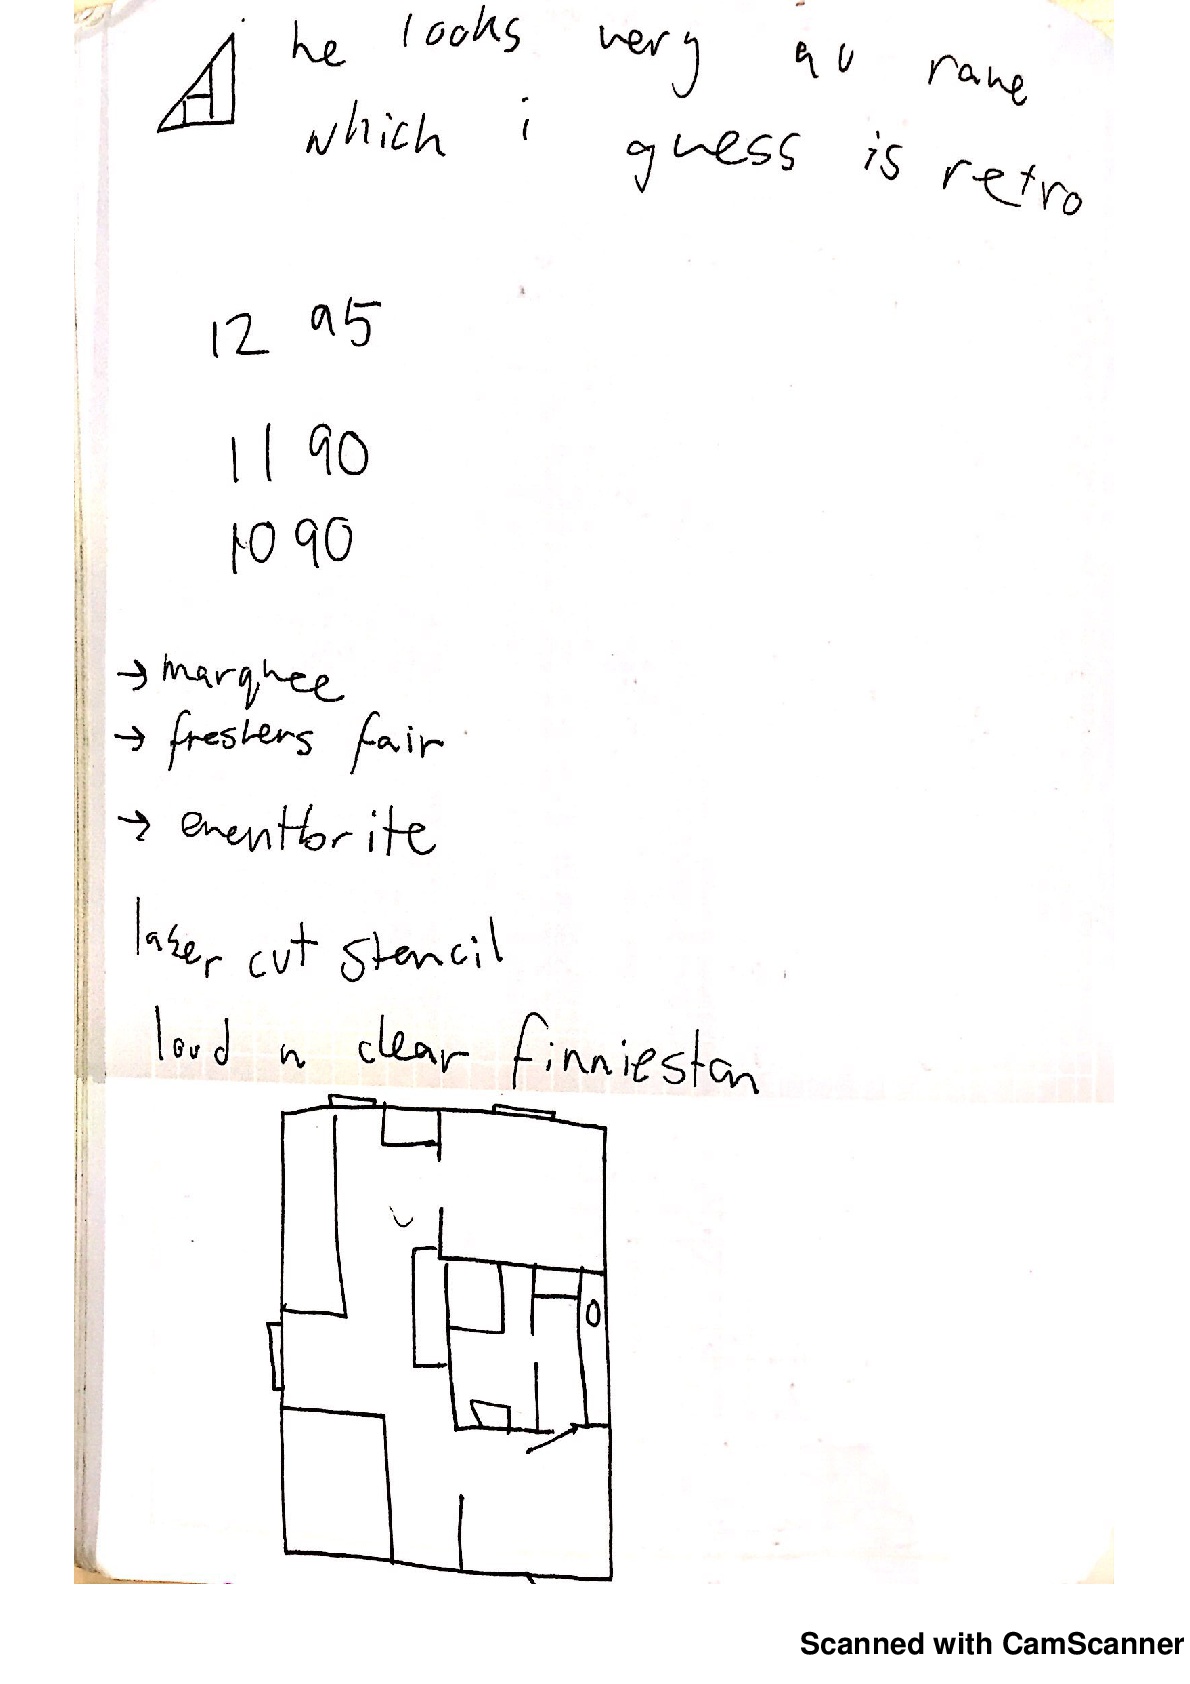 A he looks very au rave
which i guess is retro
12 95
11 90
10 90
→ marquee
→ freshers fair
→ eventbrite
laser cut stencil
loud n clear finnieston
Scanned with CamScanner